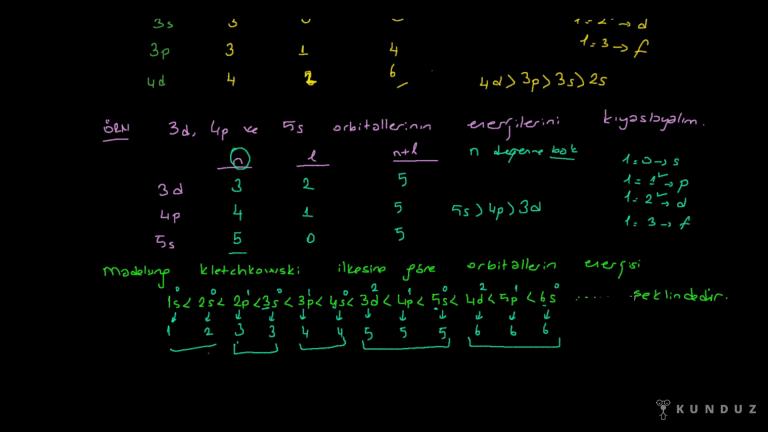 3s 3 0 3 l=2 → d
3p 3 1 4 l=3 → f
4d 4 2 6 4d > 3p > 3s > 2s
ÖRN 3d, 4p ve 5s orbitallerinin enerjilerini kıyaslayalım.
n l n+l n değerine bak l=0 → s
3d 3 2 5 l=1 → p
4p 4 1 5 5s > 4p > 3d l=2 → d
5s 5 0 5 l=3 → f
Madelung kletchkowski ilkesine göre orbitallerin enerjisi
0 0 1 0 1 0 2 1 0 2 1 0
1s < 2s < 2p < 3s < 3p < 4s < 3d < 4p < 5s < 4d < 5p < 6s ..... şeklindedir.
1 2 3 3 4 4 5 5 5 6 6 6
KUNDUZ